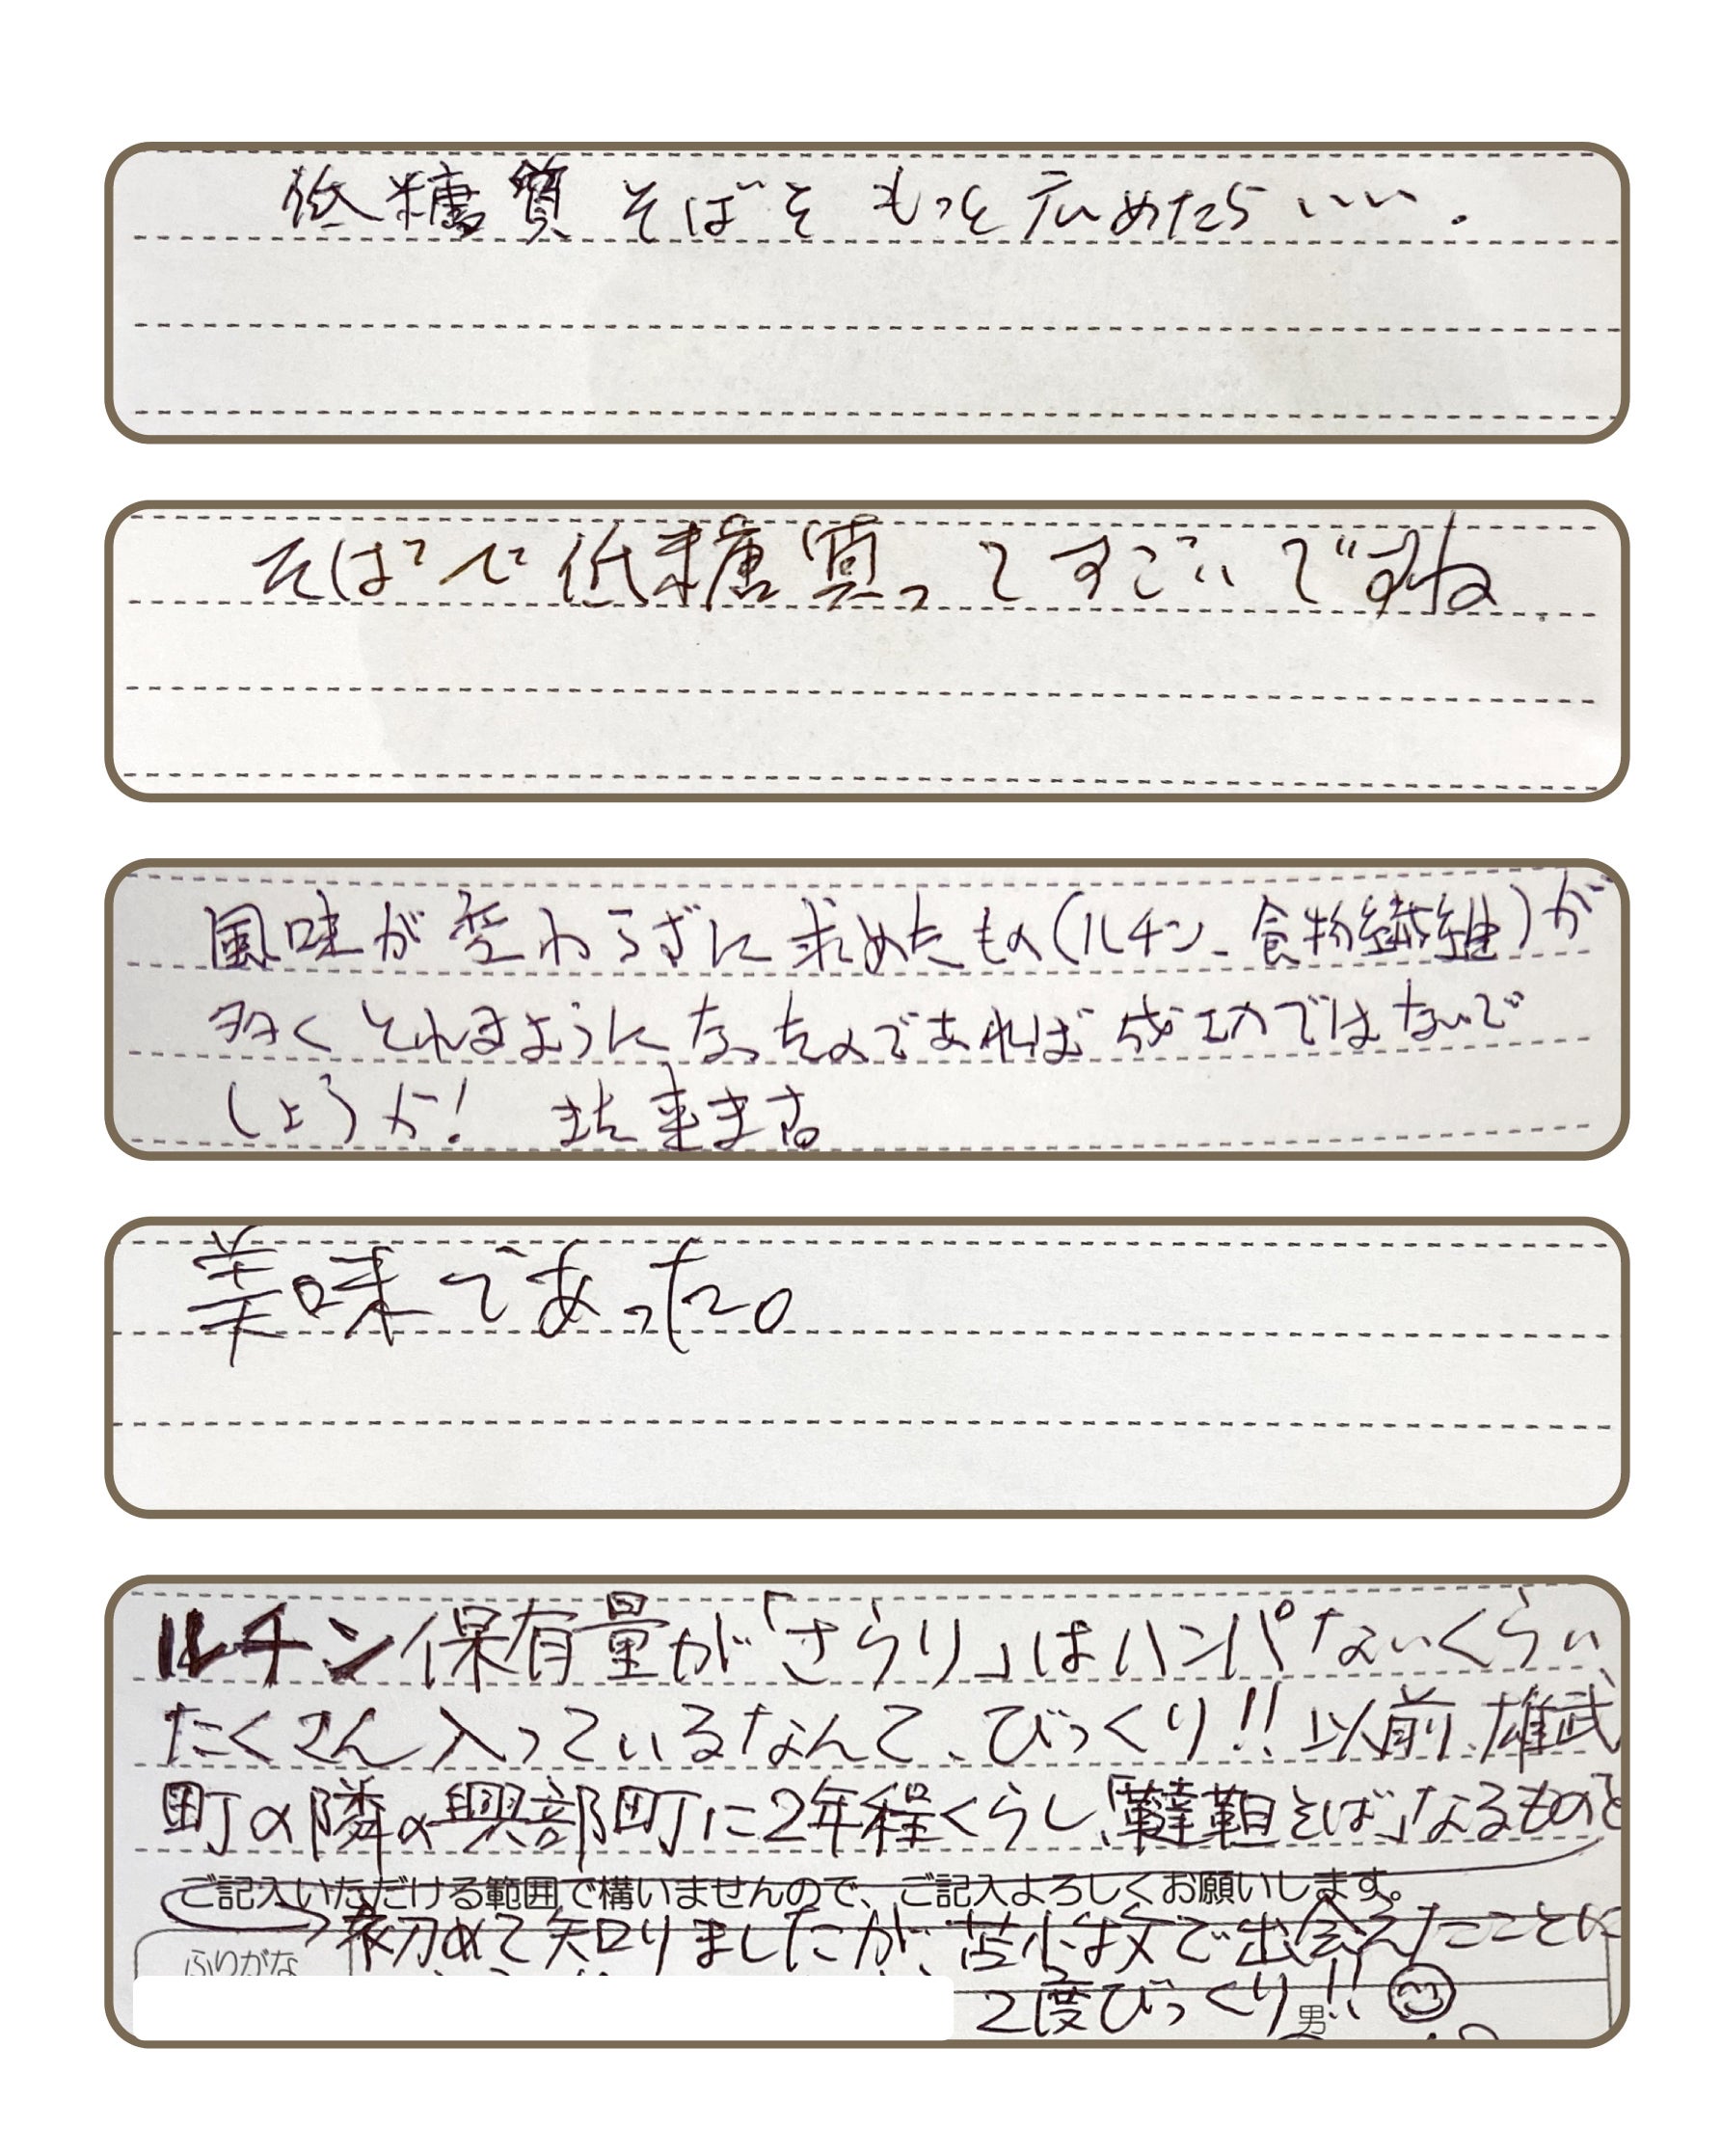 低糖質そばをもっと広めたらいい。
そばで低糖質ってすごいですね
風味が変わらずに求めたもの(ルチン、食物繊維)が
多くとれるようになったのであれば成功ではないで
しょうか! また来ます。
美味であった。
ルチン保有量が「さらり」はハンパないくらい、
たくさん入っているなんて、びっくり!!以前、雄武
町の隣の興部町に2年程くらし、「韃靼そば」なるものを
ご記入いただける範囲で構いませんので、ご記入よろしくお願いします。
初めて知りましたが、苫小牧で出会えたことに
ふりがな
2度びっくり!!
男